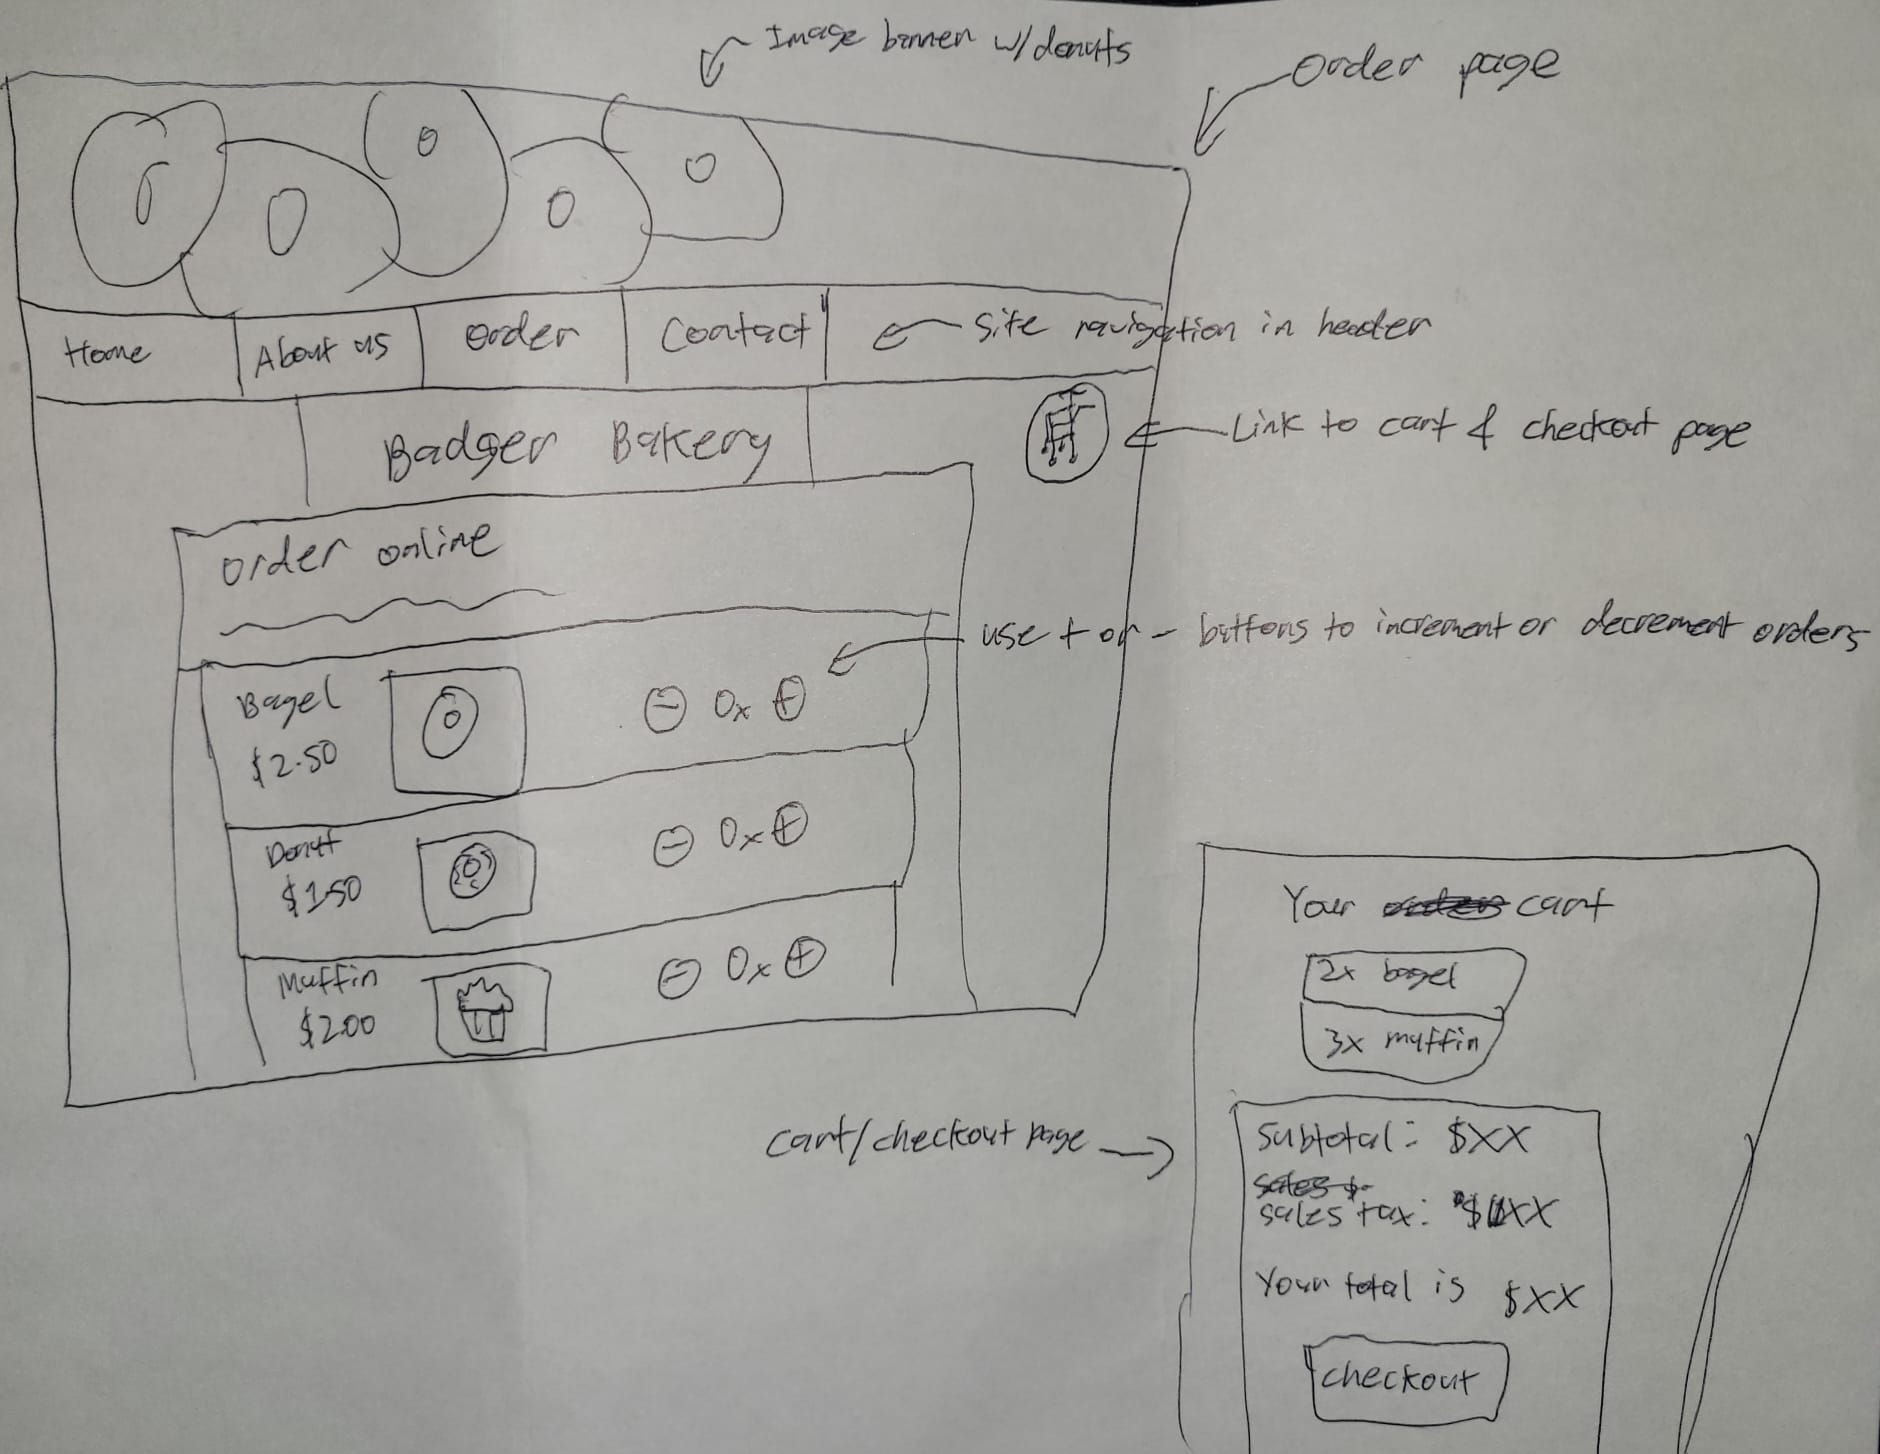 Image banner w/donuts
Order page
Home
About us
Order
Contact
Site navigation in header
Badger Bakery
Link to cart & checkout page
Order online
use + or - buttons to increment or decrement orders
Bagel
$2.50
- 0x +
Donut
$1.50
- 0x +
Muffin
$2.00
- 0x +
cart/checkout page
Your cart
2x bagel
3x muffin
Subtotal: $XX
sales tax: $XX
Your total is $XX
checkout